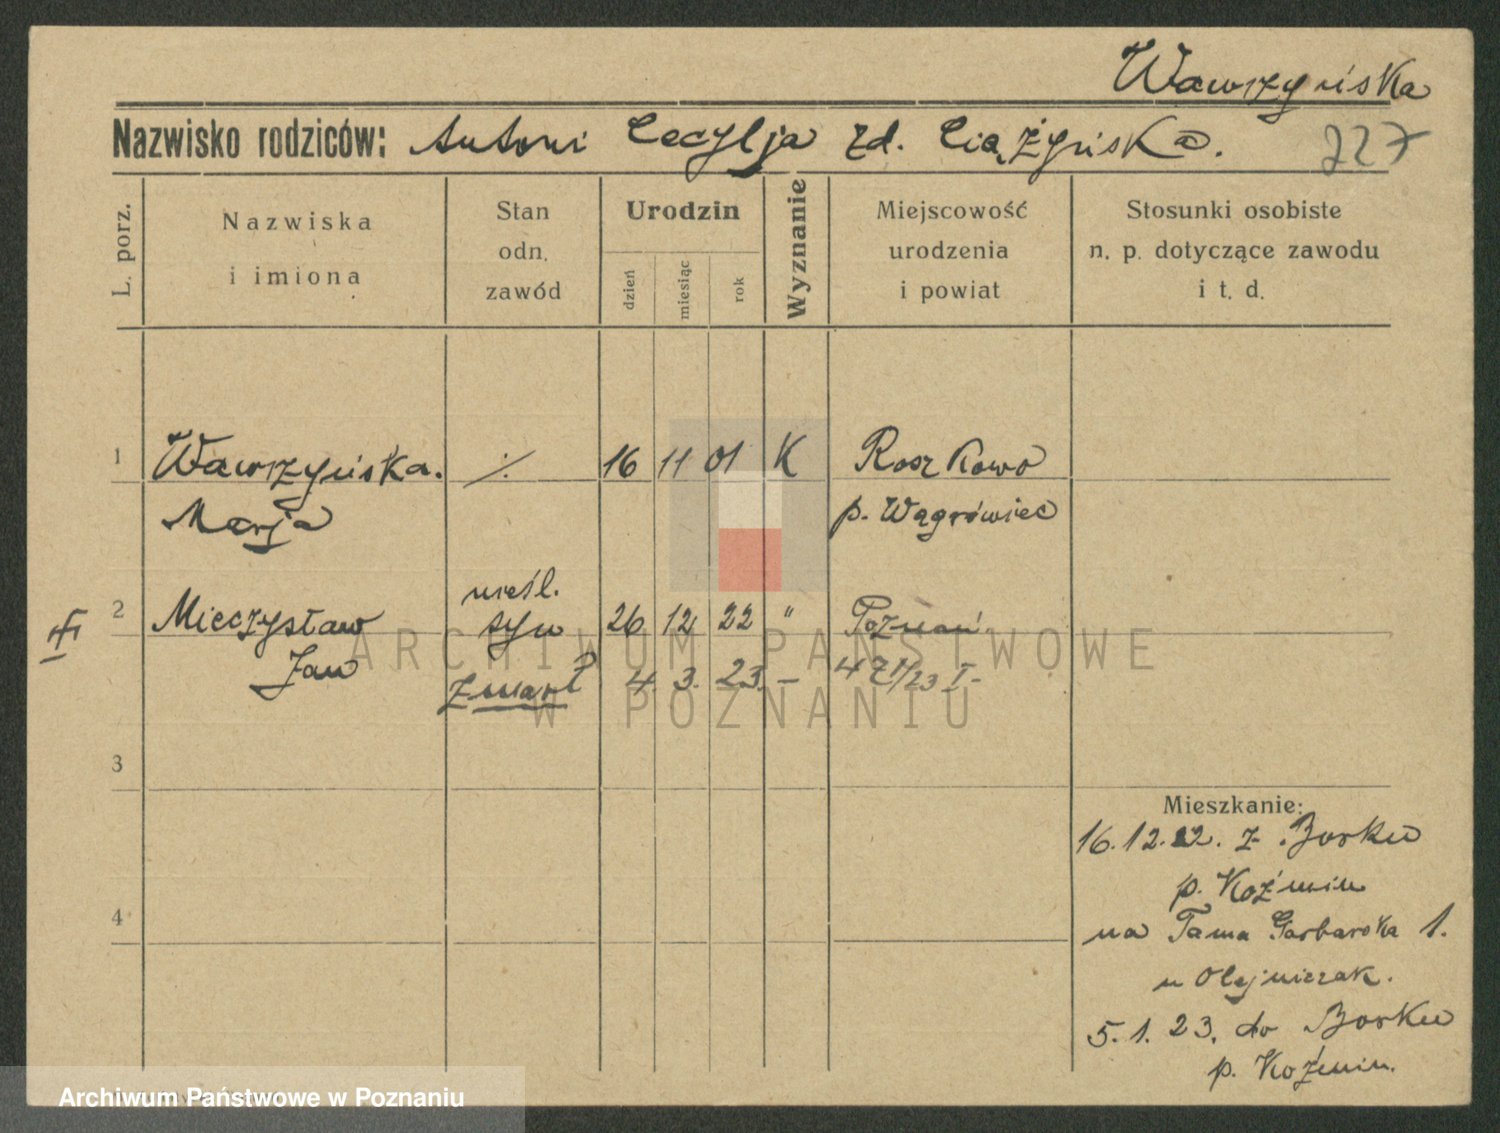 Wawrzyńska
Nazwisko rodziców: Antoni Cecylja zd. Ciążyńska. 227
L. porz.
Nazwiska
i imiona
Stan
odn.
zawód
Urodzin
dzień
miesiąc
rok
Wyznanie
Miejscowość
urodzenia
i powiat
Stosunki osobiste
n. p. dotyczące zawodu
i t. d.
1 Wawrzyńska. ./. 16 11 01 K Roszkowo
Marja p. Wągrówiec
2 Mieczysław nieśl. syn 26 12 22 " Poznań
Jan zmarł 4. 3. 23. –
3
4
Mieszkanie:
16.12.22. z Borku
p. Koźmin
na Tama Garbarska 1.
u Olejniczak.
5.1.23. do Borku
p. Koźmin.
ARCHIWUM PAŃSTWOWE
W POZNANIU
Archiwum Państwowe w Poznaniu